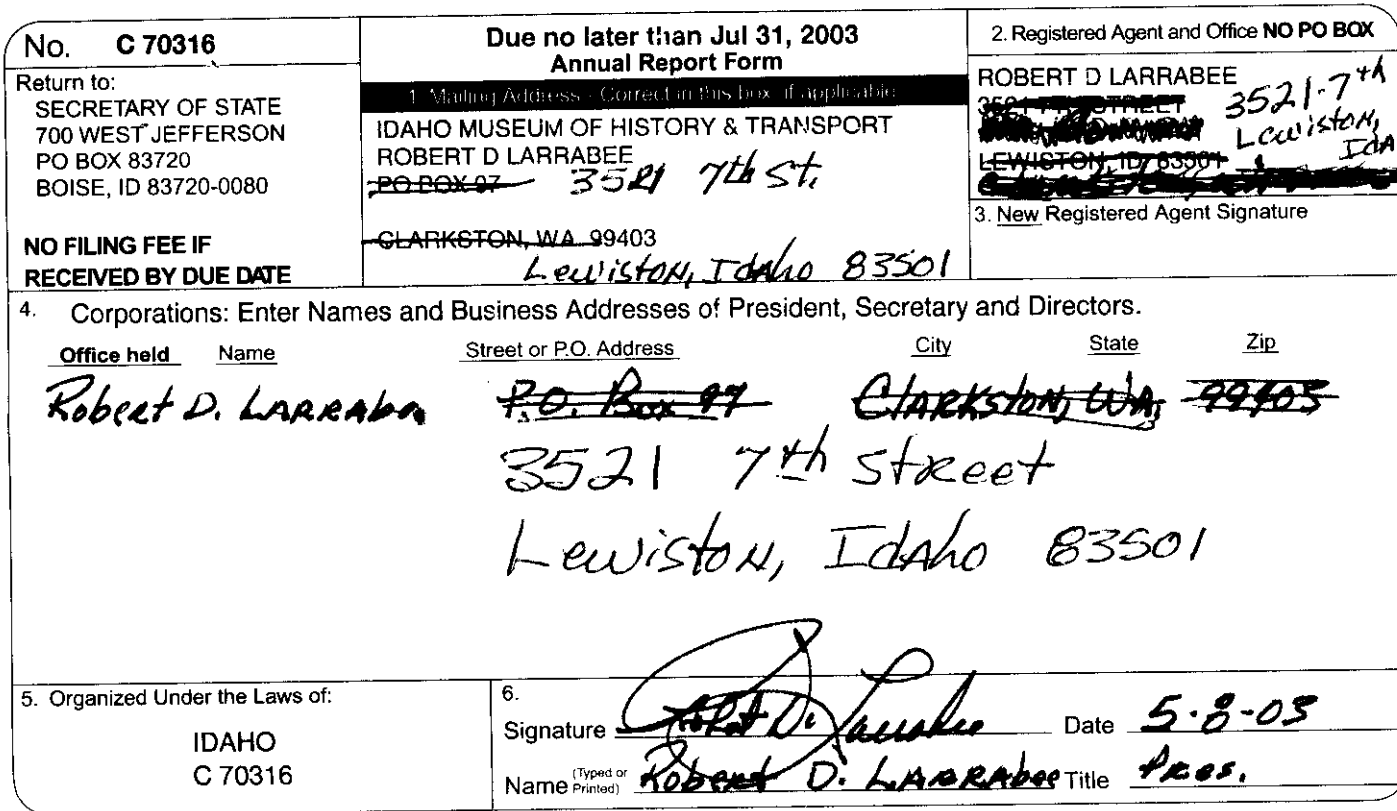 No. C 70316
Return to:
SECRETARY OF STATE
700 WEST JEFFERSON
PO BOX 83720
BOISE, ID 83720-0080
NO FILING FEE IF
RECEIVED BY DUE DATE
Due no later than Jul 31, 2003
Annual Report Form
1. Mailing Address - Correct in this box, if applicable
IDAHO MUSEUM OF HISTORY & TRANSPORT
ROBERT D LARRABEE
PO BOX 97 3521 7th St.
CLARKSTON, WA 99403
Lewiston, Idaho 83501
2. Registered Agent and Office NO PO BOX
ROBERT D LARRABEE
3521 7TH STREET 3521-7th
LEWISTON, ID 83501 Lewiston,
Ida
3. New Registered Agent Signature
4. Corporations: Enter Names and Business Addresses of President, Secretary and Directors.
Office held Name Street or P.O. Address City State Zip
Robert D. Larrabee P.O. Box 97 Clarkston, WA, 99403
3521 7th Street
Lewiston, Idaho 83501
5. Organized Under the Laws of:
IDAHO
C 70316
6.
Signature Robert D. Larrabee Date 5-8-03
Name (Typed or Printed) Robert D. Larrabee Title Pres.